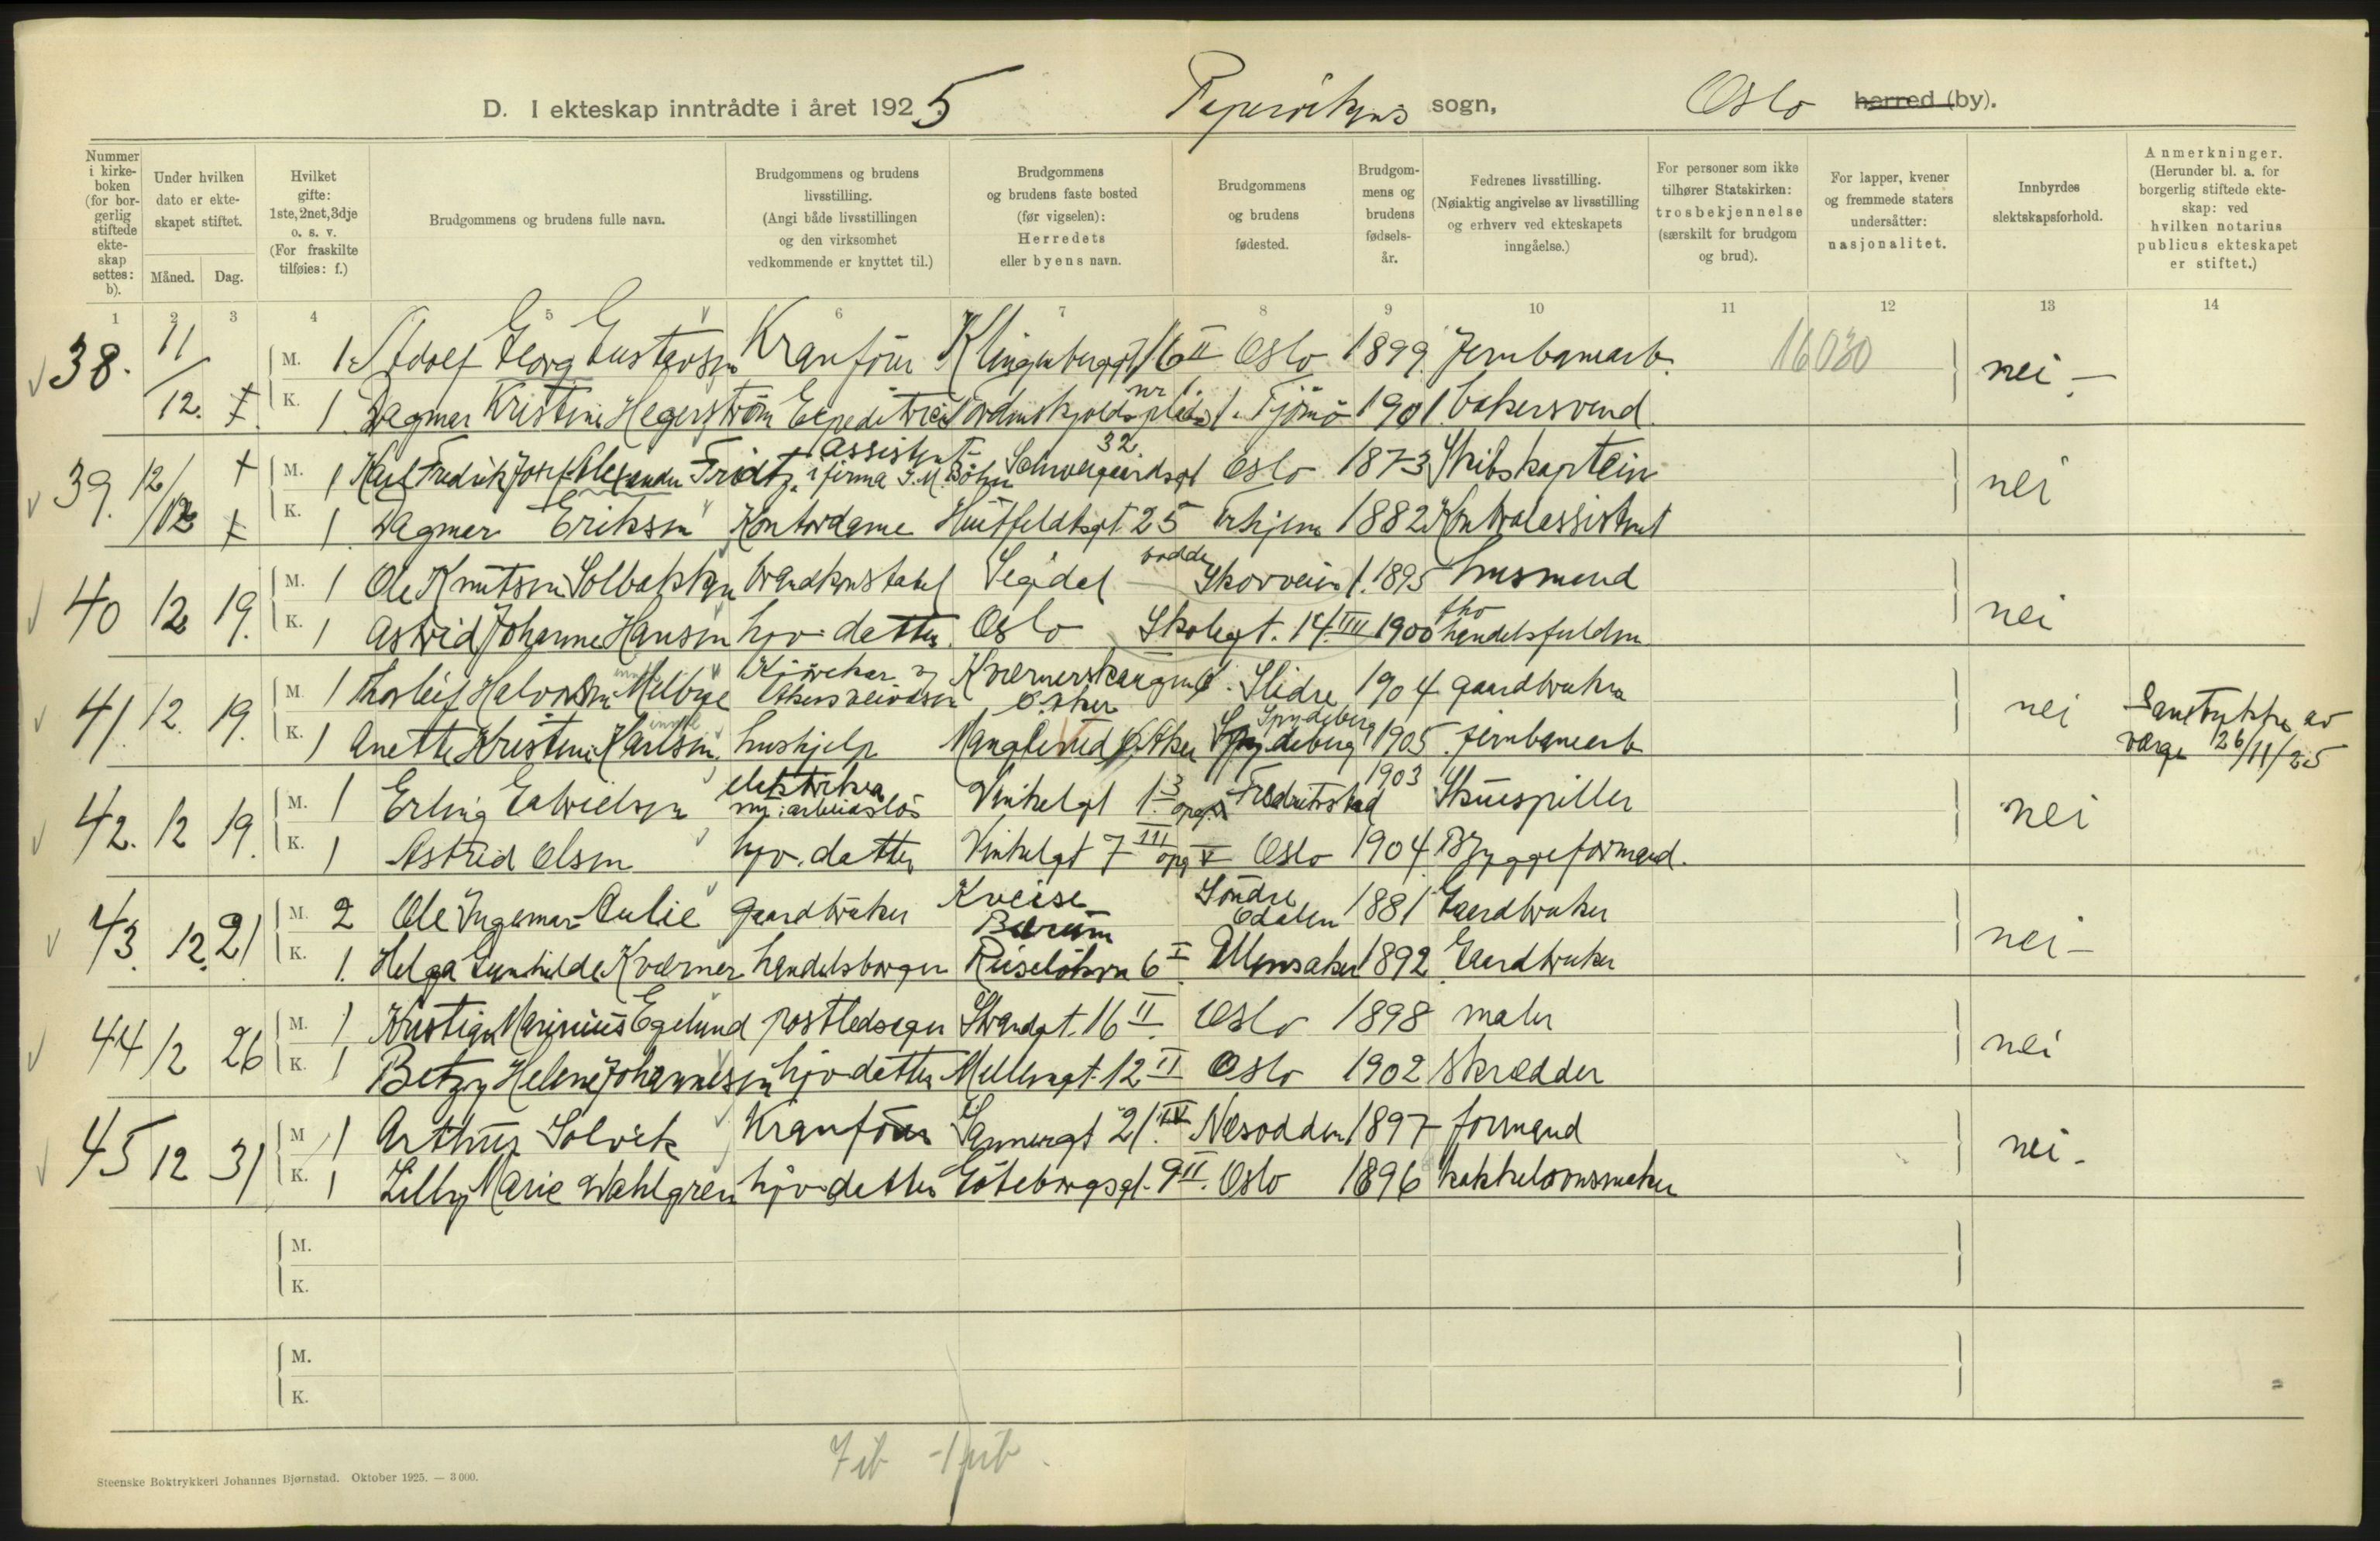 D. I ekteskap inntrådte i året 1925 Pipervikens sogn, Oslo herred (by).
Nummer i kirkeboken (for borgerlig stiftede ekteskap settes: b).
Under hvilken dato er ekteskapet stiftet.
Måned. Dag.
Hvilket gifte: 1ste, 2net, 3dje o. s. v. (For fraskilte tilføies: f.)
Brudgommens og brudens fulle navn.
Brudgommens og brudens livsstilling. (Angi både livsstillingen og den virksomhet vedkommende er knyttet til.)
Brudgommens og brudens faste bosted (før vigselen): Herredets eller byens navn.
Brudgommens og brudens fødested.
Brudgommens og brudens fødselsår.
Fedrenes livsstilling. (Nøiaktig angivelse av livsstilling og erhverv ved ekteskapets inngåelse.)
For personer som ikke tilhører Statskirken: trosbekjennelse (særskilt for brudgom og brud).
For lapper, kvener og fremmede staters undersåtter: nasjonalitet.
Innbyrdes slektskapsforhold.
Anmerkninger. (Herunder bl. a. for borgerlig stiftede ekteskap: ved hvilken notarius publicus ekteskapet er stiftet.)
1 2 3 4 5 6 7 8 9 10 11 12 13 14
38. 11/12. M. 1 Adolf Georg Gustavsen Kranfører Klingenberggt 16 II Oslo 1899 Jernbanearb. 16030 nei -
K. 1 Dagmar Kristine Hegerström Expeditrice Tordenskjolds plads nr 1. Tjømø 1901 bakersvend
39. 12/12 M. 1 Karl Fredrik Josef Alexander Tridtz assistent i firma Schweigaardsgt 32 Oslo 1873 Skibskaptein nei
K. 1 Dagmar Eriksen Kontordame Huitfeldtsgt. 25 Trhjem 1882 Kontorassistent
40 12 19. M. 1 Ole Knutsen Solbakken brandkonstabel Sigdal bodde Skovveien 1. 1895 husmand nei
K. 1 Astrid Johanne Hansen hjv. datter Oslo Skolegt. 14 III 1900 fho handelsfuldm.
41. 12. 19. M. 1 Thorleif Halvorsen Melbye Kjørekar Kværnerskaugen Ø. Aker Slidre 1904 gaardbruker nei Samtykke av værge 26/11/25
K. 1 Anette Kristine Karlsen hushjelp Manglerud Ø. Aker Spydeberg Spydeberg 1905 jernbanearb
42. 12 19. M. 1 Erling Gabrielsen elektriker arbeidsløs Vinkelgt 1 3 opg. Fredrikstad 1903 Skuespiller nei
K. 1 Astrid Olsen hjv. datter Vinkelgt 7 III opg V Oslo 1904 Byggeformand.
43. 12. 21 M. 2 Ole Ingemar Aulie gaardbruker Kveise Bærum Søndre Odalen 1881 Gaardbruker nei -
K. 1. Helga Gunhilda Kværner handelsborger Ruseløkvn 6 I Ullensaker 1892 Gaardbruker
44 12 26 M. 1 Kristian Marinius Egelund postledsager Strandgt. 16 II. Oslo 1898 maler nei
K. 1 Betzy Helene Johannesen hjv datter Møllergt. 12 II Oslo 1902 Skrædder
45 12 31 M 1 Arthur Solvik Kranfører Sannergt 21. IV Nesodden 1897 formand nei -
K. 1 Lilly Marie Wahlgren hjv datter Göteborgsgt. 9 II. Oslo 1896 kakkelovnsmaker
M.
K.
M.
K.
Steenske Boktrykkeri Johannes Bjørnstad. Oktober 1925. — 3 000.